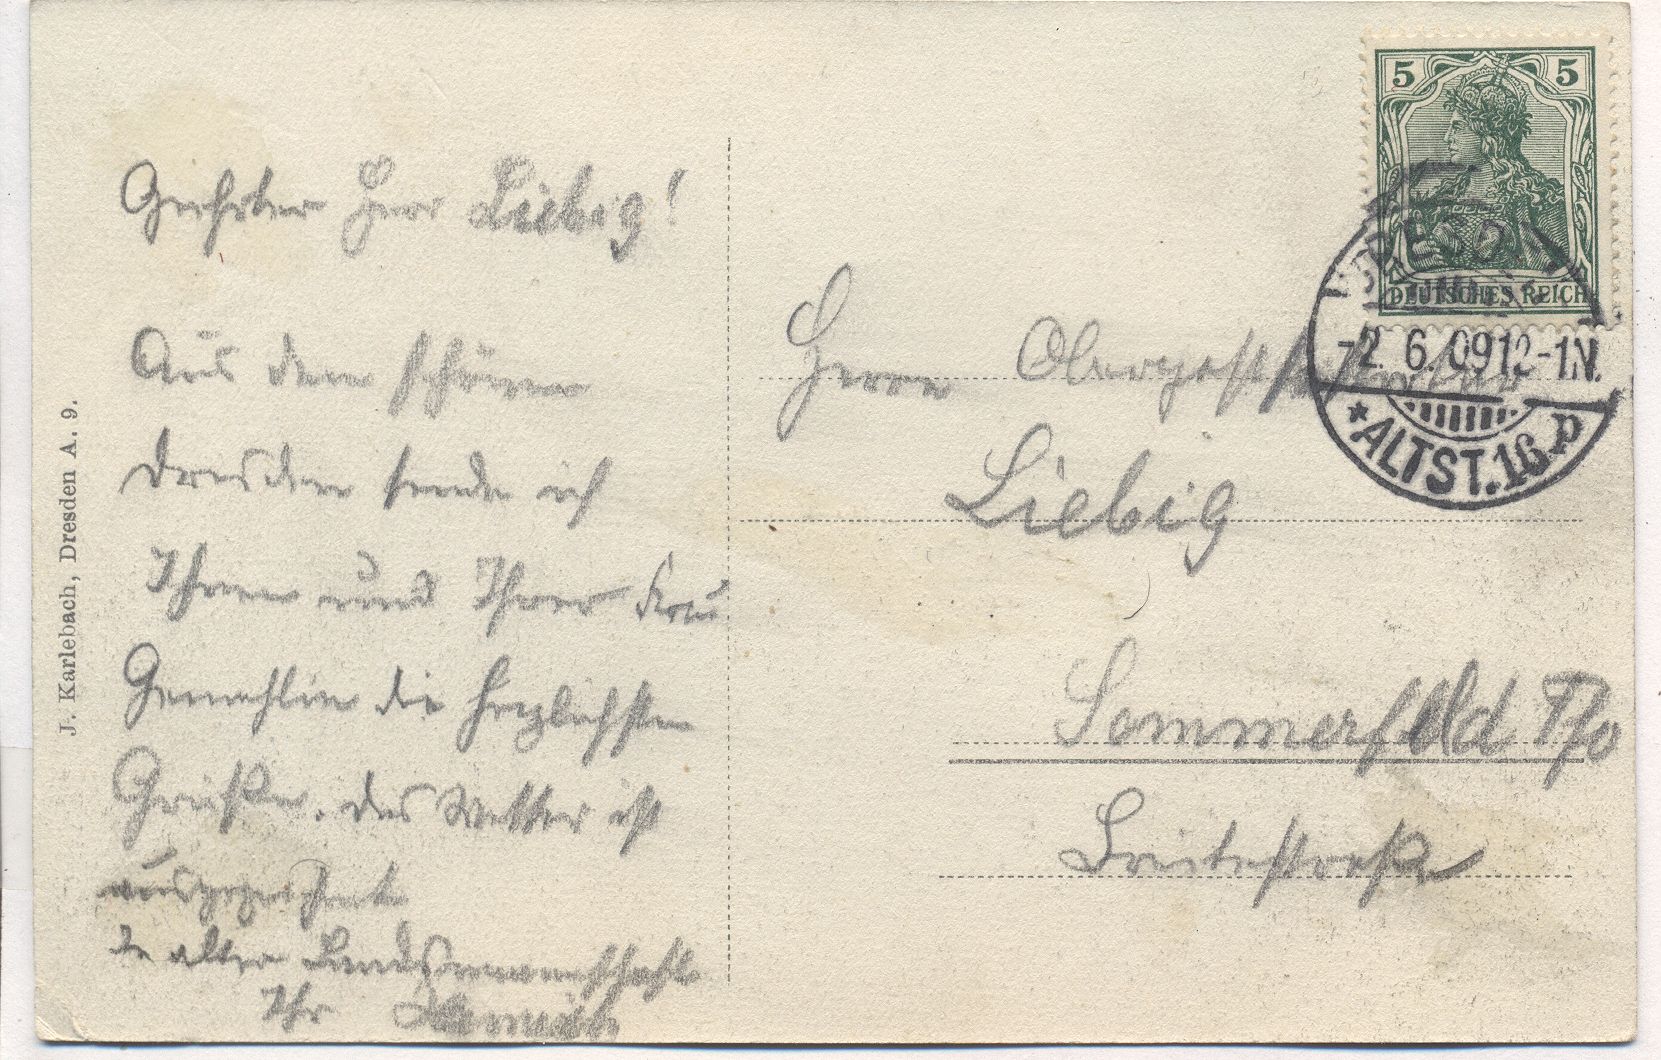 Geehrter Herr Liebig!
Aus dem schönen
Dresden sende ich
Ihnen und Ihrer Frau
Gemahlin die herzlichsten
Grüße. Das Wetter ist
ausgezeichnet
In alter Landsmannschaft
Ihr
J. Karlebach, Dresden A. 9.
5 5
DEUTSCHES REICH
DRESDEN
-2. 6. 09 12-1N.
* ALTST. 16 p
Herrn Oberpostsekretär
Liebig
Sommerfeld
Breitestraße